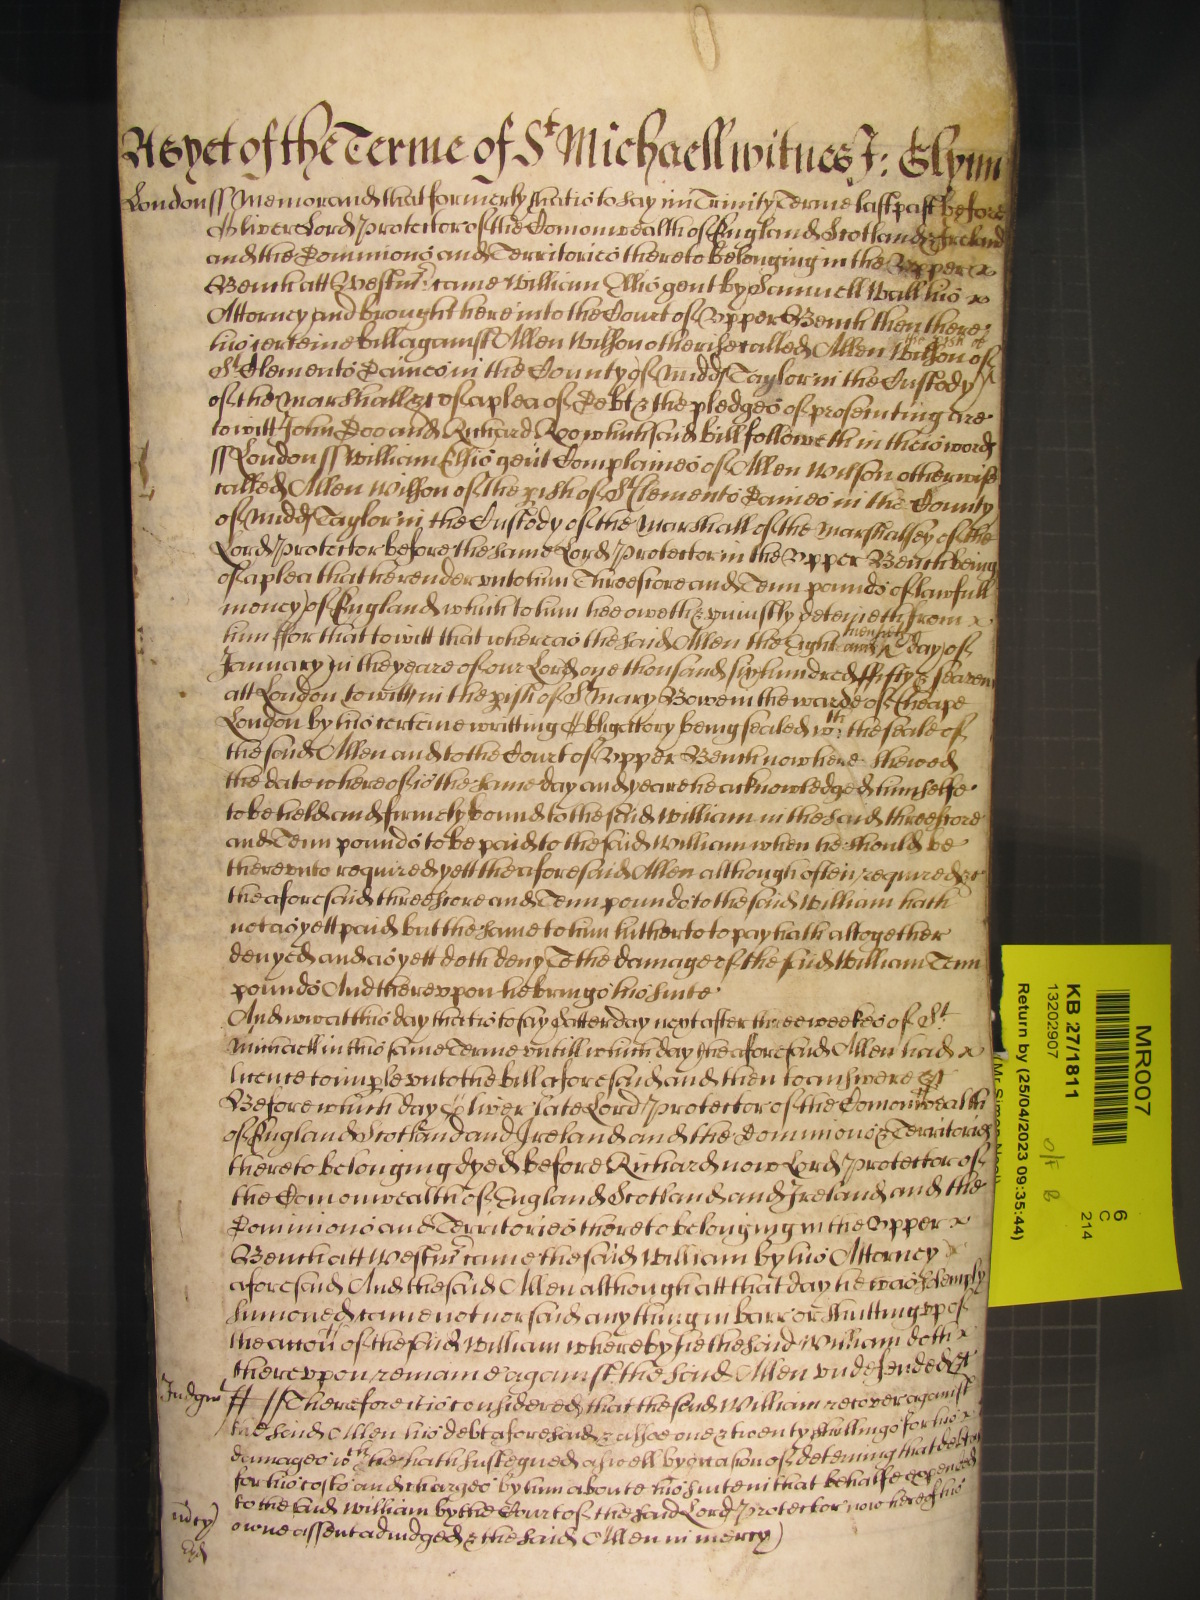 As yet of the Terme of St Michaell witnes J: Glynn
London ss Memorand that formerly that is to say in Trinity Terme last past before
Oliver Lord Protector of the Comonwealth of England Scotland & Ireland
and the Dominions and Territories thereto belonging in the Upper
Bench att Westmr came William Ellis gent by Samuell Wall his
Attorney and brought here into the Court of Upper Bench then there
his certeine bill against Allen Wilson otherwise called Allen Wilson of the pish of
St Clements Danes in the County of Midd Taylor in the Custody
of the Marshall &c of a plea of Debt & the pledges of prosecuting are
to witt John Doo and Richard Roo which said bill followeth in theis words
ss London ss William Ellis gent Complaines of Allen Wilson otherwise
called Allen Wilson of the pish of St Clements Danes in the County
of Midd Taylor in the Custody of the Marshall of the Marshalsey of the
Lord Protector before the same Lord Protector in the Upper Bench being
of a plea that he render unto him Threescore and Tenn pounds of lawfull
money of England which to him hee oweth & uniustly deteineth from
him ffor that to witt that whereas the said Allen the Eight day of
January in the yeare of our Lord one thousand six hundred ffifty & seaven
att London to witt in the pish of St Mary Bowe in the warde of Cheape
London by his certeine writting Obligatory being sealed wth the seale of
the said Allen and to the Court of Upper Bench now here shewed
the date whereof is the same day and yeare he acknowledged himselfe
to be held and firmely bound to the said William in the said threescore
and Tenn pounds to be paid to the said William when he should be
thereunto required yett the aforesaid Allen although often required &c
the aforesaid threescore and Tenn pounds to the said William hath
not as yett paid but the same to him hitherto to pay hath altogether
denyed and as yett doth deny To the damage of the said William Tenn
pounds And thereupon he brings his suite
And now att this day that is to say Satterday next after three weekes of St
Michaell in this same Terme untill which day the aforesaid Allen had
licence to imple unto the bill aforesaid and then to answere &c
Before which day Oliver late Lord Protector of the Comonwealth
of England Scotland and Ireland and the Dominions & Territories
thereto belonging dyed before Richard now Lord Protector of
the Comonwealth of England Scotland and Ireland and the
Dominions and Territories thereto belonging in the Upper
Bench att Westmr came the said William by his Attorney
aforesaid And the said Allen although att that day he was solemply
sumoned came not nor said any thing in barr or shutting up of
the accon of the said William whereby he the said William doth
thereupon remaine against the said Allen undefended &c
Judgmt ss Therefore it is considered that the said William recover against
the said Allen his debt aforesaid & alsoe one & twenty shillings for his
damages wch he hath susteyned aswell by occasion of deteining that debt as
for his costs and charges by him aboute his suite in that behalfe expended
to the said William by the Court of the said Lord Protector now here of his
owne assent adiudged & the said Allen in mercy
mcy
MR007
KB 27/1811
13202907
Return by (25/04/2023 09:35:44)
6
C
214